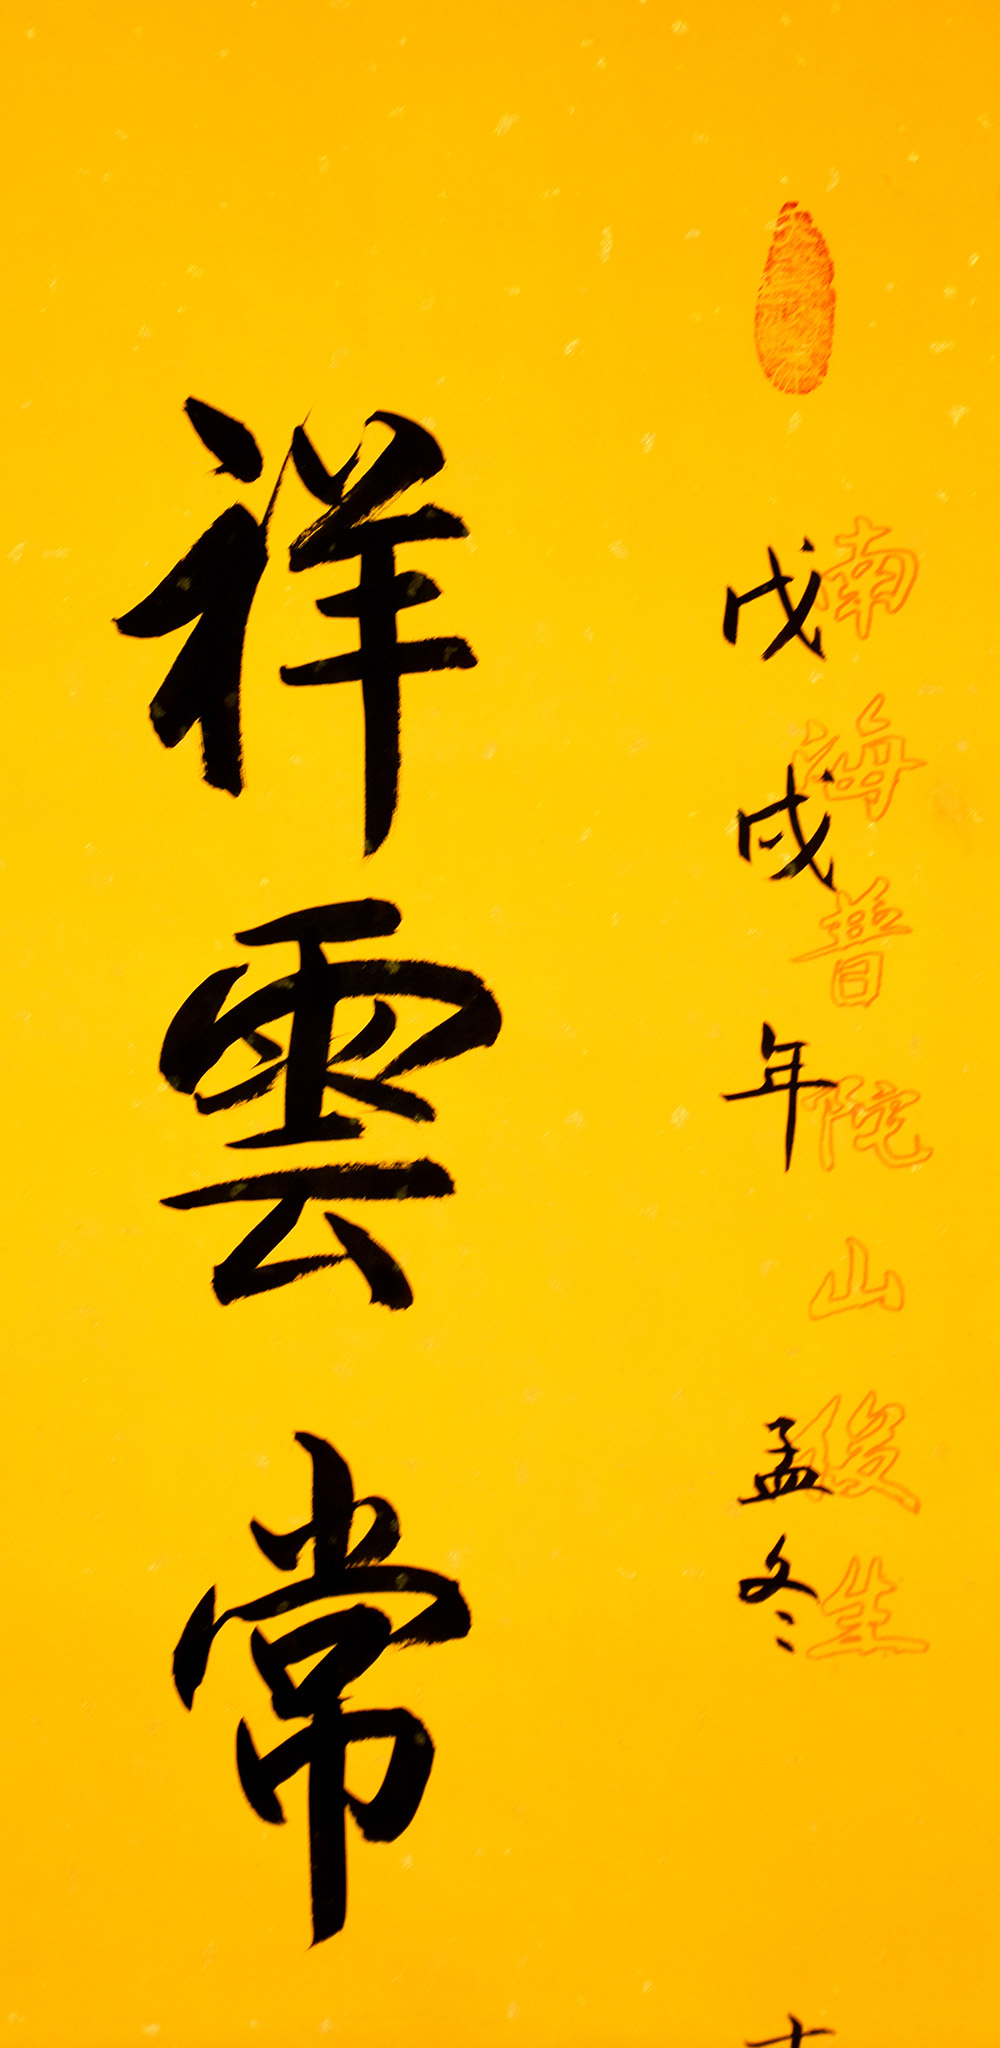 南海普陀山
戊戌年孟冬
祥雲常